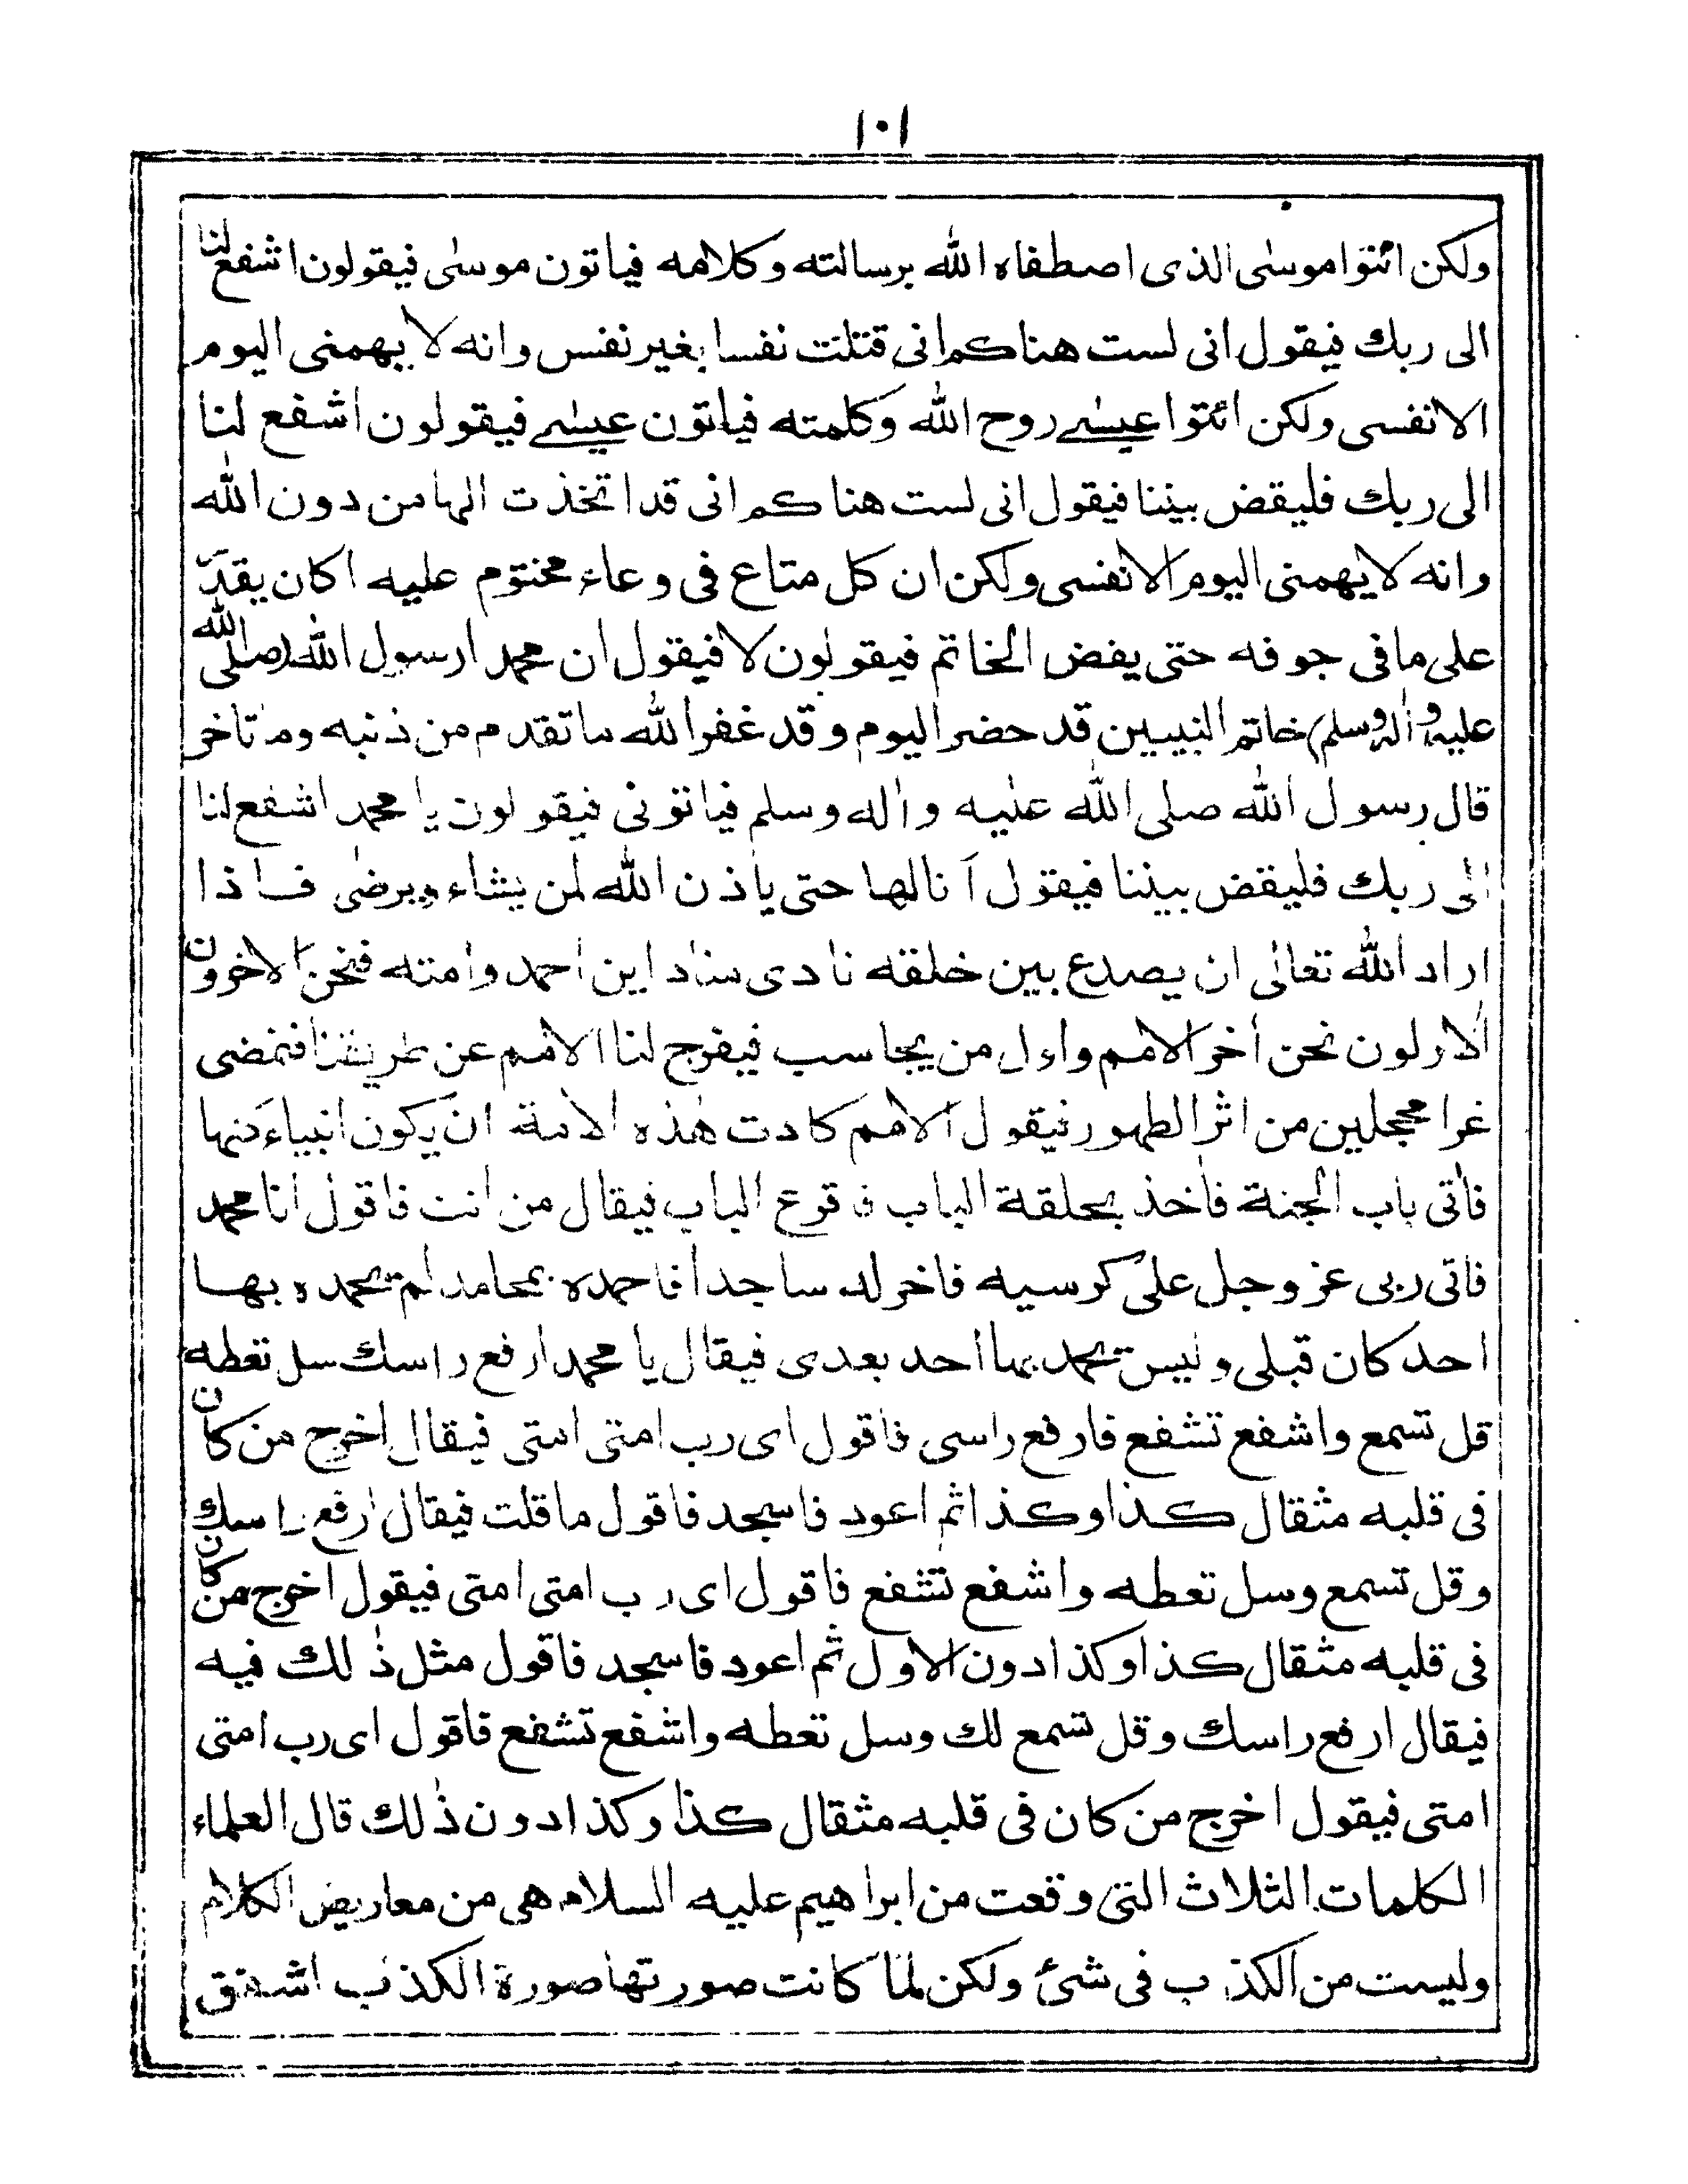 ١٠١
ولكن ائتوا موسٰى الذى اصطفاه الله برسالته وكلامه فياتون موسٰى فيقولون اشفع لنا
الى ربك فيقول انى لست هناكم انى قتلت نفسا بغير نفس وانه لا يهمنى اليوم
الا نفسى ولكن ائتوا عيسٰے روح الله وكلمته فياتون عيسٰے فيقولون اشفع لنا
الى ربك فليقض بيننا فيقول انى لست هناكم انى قد اتخذت الها من دون الله
وانه لا يهمنى اليوم الا نفسى ولكن ان كل متاع فى وعاء مختوم عليه اكان يقدّ
على ما فى جوفه حتى يفض الخاتم فيقولون لا فيقول ان محمدا رسول الله (صلى الله
عليه وآله وسلم) خاتم النبيين قد حضر اليوم وقد غفر الله ما تقدم من ذنبه وما تاخر
قال رسول الله صلى الله عليه وآله وسلم فياتونى فيقولون يا محمد اشفع لنا
الى ربك فليقض بيننا فيقول آنا لها حتى ياذن الله لمن يشاء ويرضى فاذا
اراد الله تعالٰى ان يصدع بين خلقه نادى مناد اين احمد وامته فنحن الاخرون
الاولون نحن أخر الامم واول من يحاسب فيفرج لنا الامم عن طريقنا فنمضى
غرا محجلين من اثر الطهور فيقول الامم كادت هٰذه الامة ان يكون انبياء منها
فأتى باب الجنة فأخذ بحلقة الباب فاقرع الباب فيقال من انت فاقول انا محمد
فاتى ربى عز وجل علىٰ كرسيه فاخر له ساجدا فاحمده بمحامد لم يحمده بها
احد كان قبلى وليس يحمد بها أحد بعدى فيقال يا محمد ارفع راسك سل تعطه
قل تسمع واشفع تشفع فارفع راسى فاقول اى رب امتى امتى فيقال اخرج من كان
فى قلبه مثقال كذا وكذا ثم اعود فاسجد فاقول ما قلت فيقال ارفع راسك
وقل تسمع وسل تعطه واشفع تشفع فاقول اى رب امتى امتى فيقول اخرج من كان
فى قلبه مثقال كذا وكذا دون الاول ثم اعود فاسجد فاقول مثل ذٰلك فيه
فيقال ارفع راسك وقل تسمع لك وسل تعطه واشفع تشفع فاقول اى رب امتى
امتى فيقول اخرج من كان فى قلبه مثقال كذا وكذا دون ذٰلك قال العلماء
الكلمات الثلاث التى وقعت من ابراهيم عليه السلام هى من معاريض الكلام
وليست من الكذب فى شئ ولكن لما كانت صورتها صورة الكذب اشفق